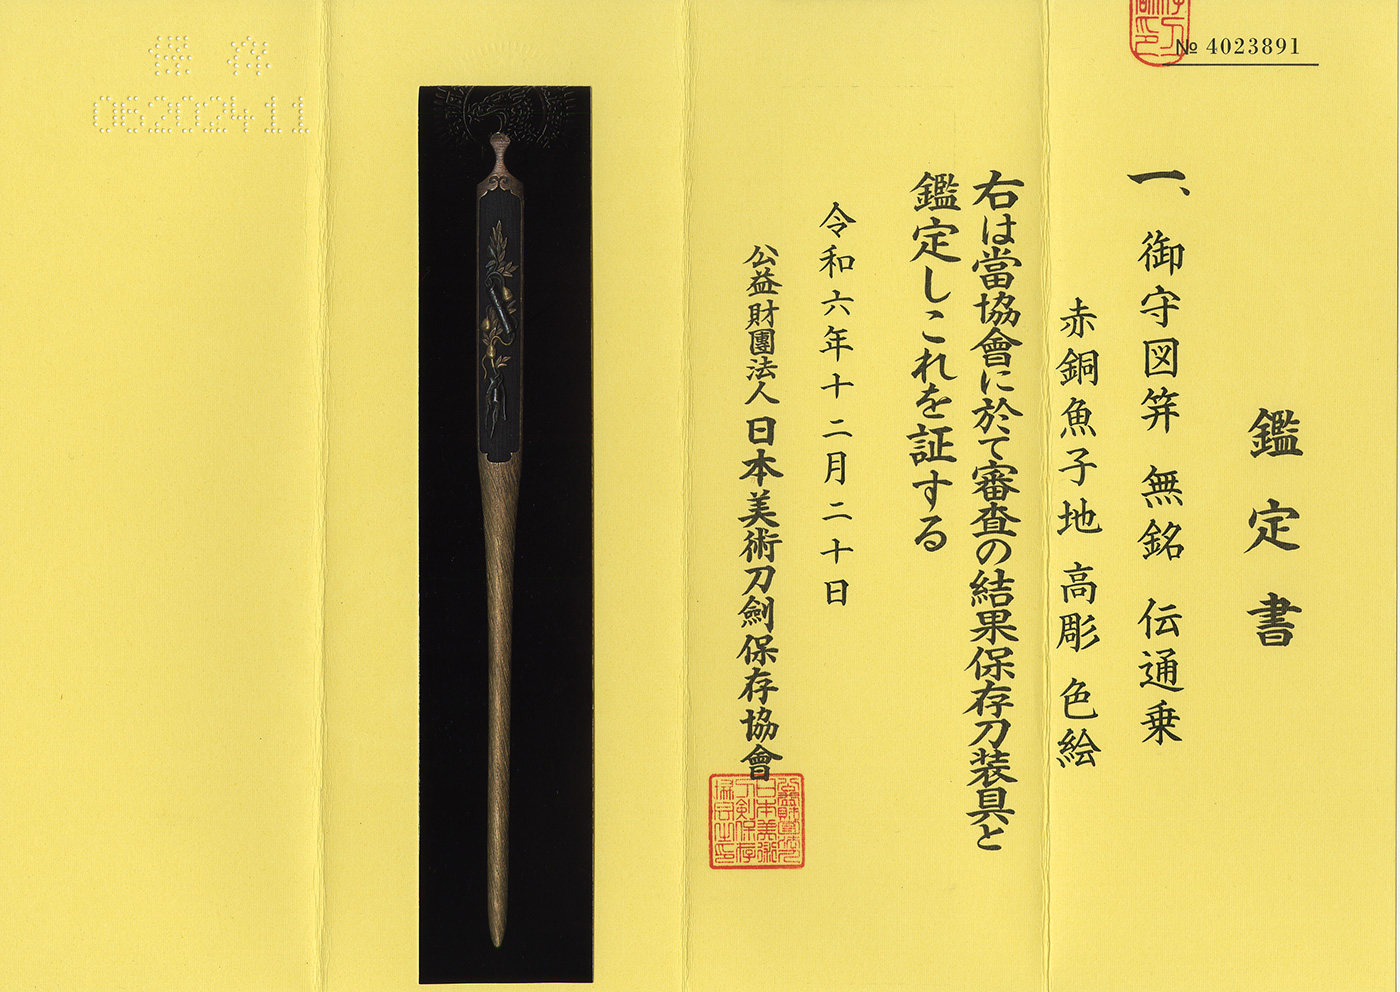 № 4023891
鑑定書
一、御守図笄 無銘 伝通乗
赤銅魚子地 高彫 色絵
右は當協會に於て審査の結果保存刀装具と
鑑定しこれを証する
令和六年十二月二十日
公益財團法人 日本美術刀劍保存協會
公益財團法人
日本美術
刀剣保存
協会之印
保存
0620241​1